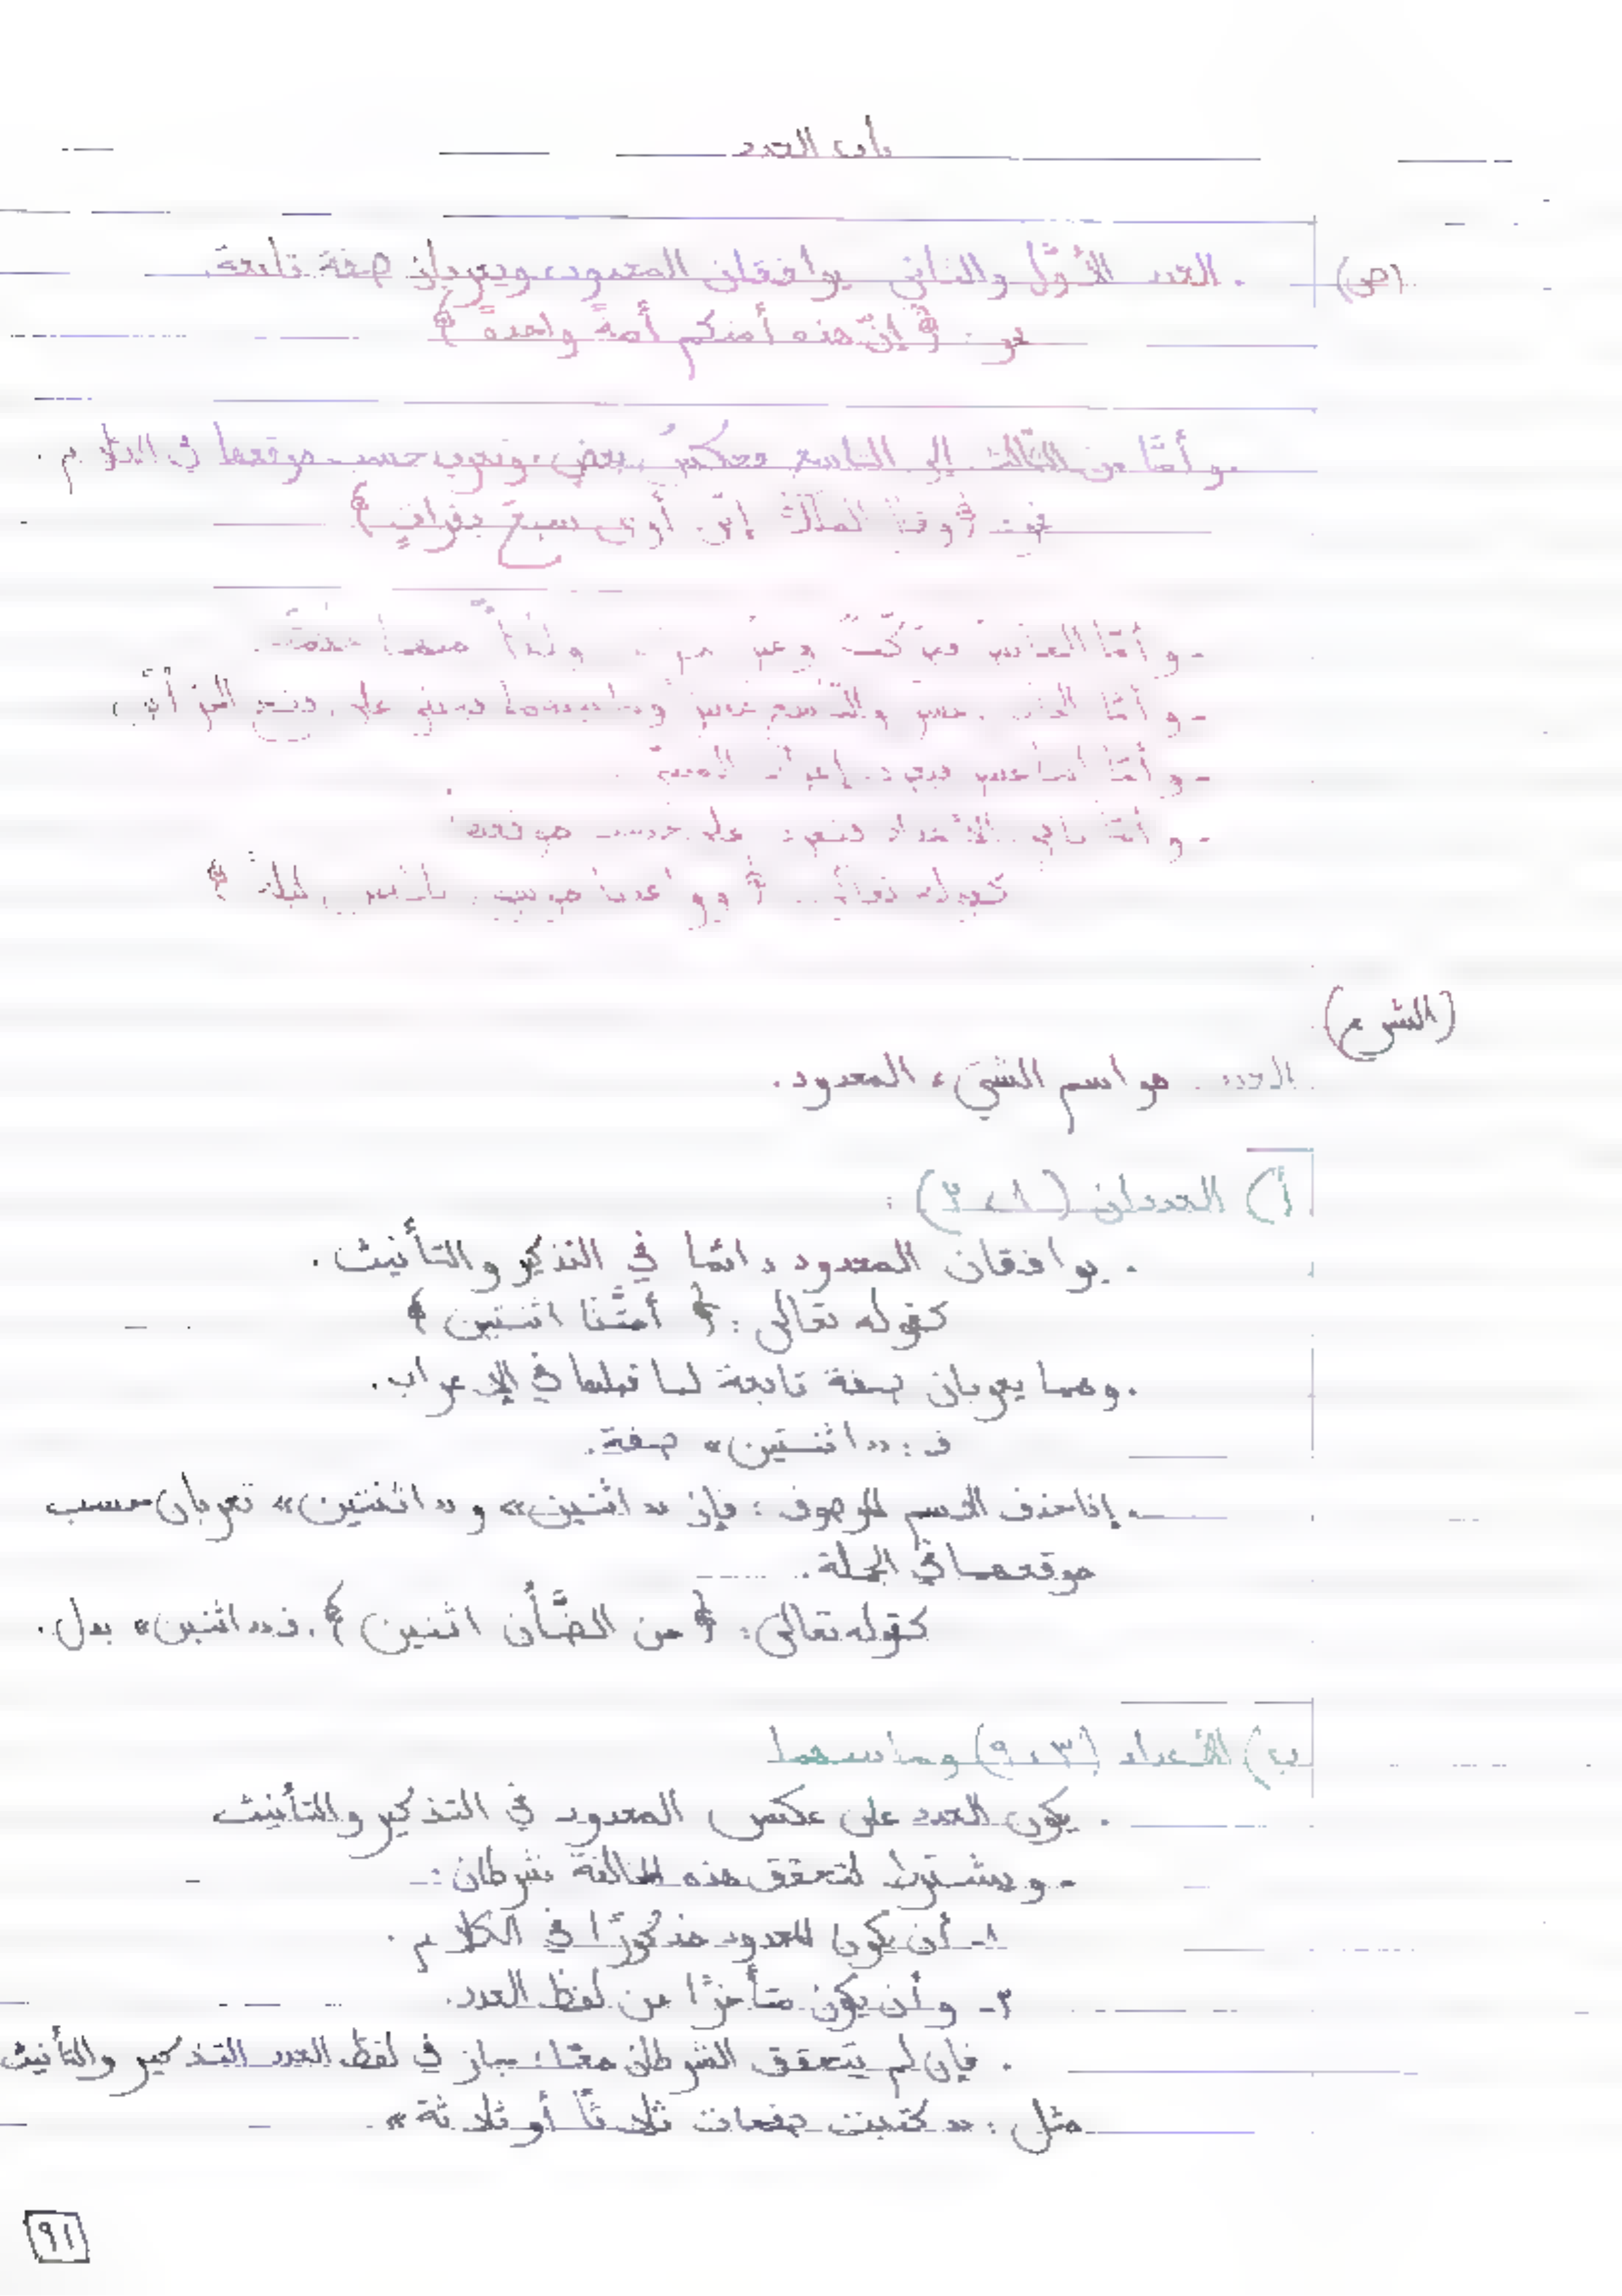 باب العدد
(ص) . العدد الأوّل والثاني يوافقان المعدود ويعربان صفة تابعة.
نحو : { إنّ هذه أمتكم أمةً واحدةً }
. وأمّا من الثالث إلى التاسع فعكسُ بعضٍ، وتعرب حسب موقعها في الكلام .
نحو : { وقال الملك إنّي أرى سبعَ بقراتٍ }
- وأمّا العاشر
- وأمّا عشر والتاسع عشر وما بينهما فيبنى على فتح
- وأمّا اثنا عشر إعراب المثنى
- وأمّا باقي الأعداد على حسب موقعه
كقوله تعالى : { وواعدنا موسى ثلاثين ليلة }
(الشرح)
العدد : هو اسم الشيء المعدود .
أ) العددان (١، ٢) :
. يوافقان المعدود دائما في التذكير والتأنيث .
كقوله تعالى : { أمتَّنا اثنتين }
. وهما يعربان صفة تابعة لما قبلها في الإعراب .
فـ : «اثنتين» صفة .
. إذا حذف الاسم الموصوف : فإن «اثنين» و «اثنتين» تعربان حسب
موقعهما في الجملة .
كقوله تعالى : { من الضَّأن اثنين } ، فـ «اثنين» بدل .
ب) الأعداد (٣، ٩) وما بينهما
. يكون العدد على عكس المعدود في التذكير والتأنيث
- ويشترط لتحقق هذه المخالفة شرطان :
١- أن يكون المعدود مذكورًا في الكلام .
٢- وأن يكون متأخرًا عن لفظ العدد .
. فإن لم يتحقق الشرطان معًا ؛ جاز في لفظ العدد التذكير والتأنيث
مثل : «كتبت صفحات ثلاثًا أو ثلاثة» .
٩١